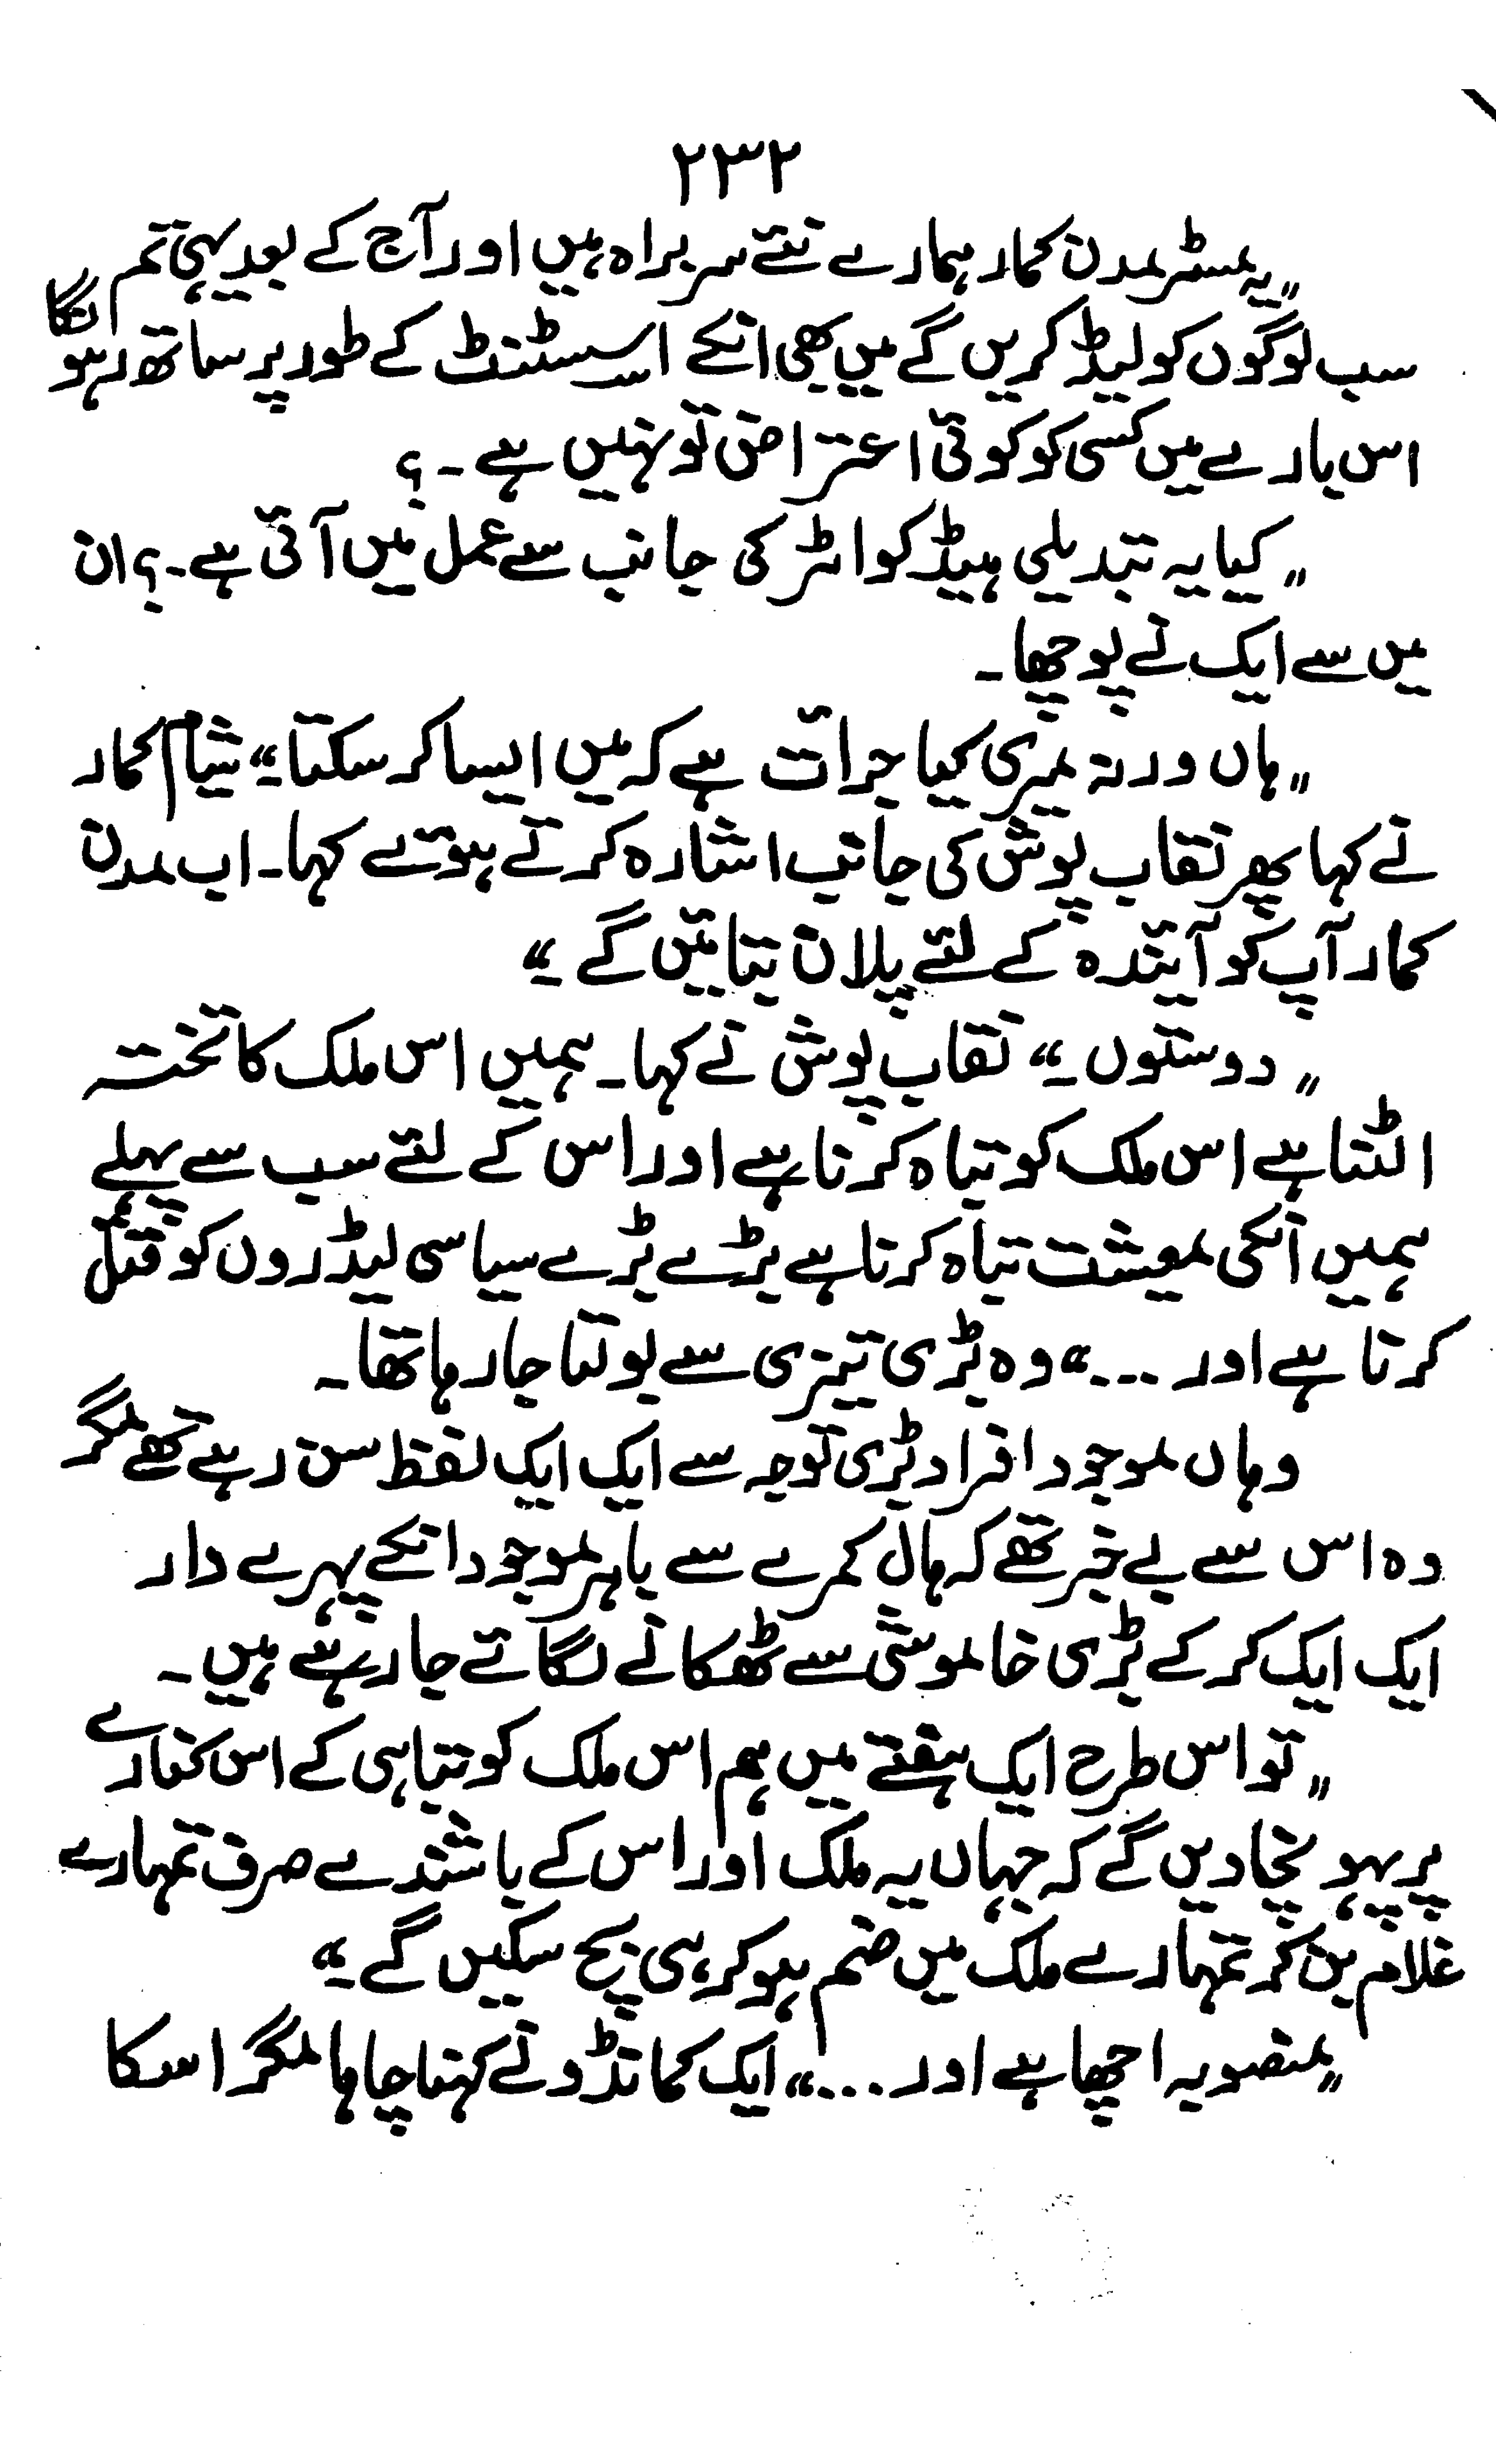 ۲۳۲
"یہ مسٹر مدن کمار ہمارے نئے سربراہ ہیں اور آج کے بعد یہی تم
سب لوگوں کو لیڈ کریں گے میں بھی انکے اسسٹنٹ کے طور پر ساتھ رہو نگا
اس بارے میں کسی کو کوئی اعتراض تو نہیں ہے ۔ ؟
"کیا یہ تبدیلی ہیڈ کوائٹر کی جانب سے عمل میں آئی ہے ۔ ؟ ان
میں سے ایک نے پوچھا ۔
"ہاں ورنہ میری کیا جرآت ہے کہ میں ایسا کر سکتا ۔" شیام کمار
نے کہا پھر نقاب پوش کی جانب اشارہ کرتے ہوئے کہا ۔ اب مدن
کمار آپ کو آیندہ کے لئے پلان بتائیں گے ۔"
"دوستوں ۔" نقاب پوش نے کہا ۔ ہمیں اس ملک کا تختہ
الٹنا ہے اس ملک کو تباہ کرنا ہے اور اس کے لئے سب سے پہلے
ہمیں انکی معیشت تباہ کرنا ہے بڑے بڑے سیاسی لیڈروں کو قتل
کرنا ہے اور ...." وہ بڑی تیزی سے بولتا جا رہا تھا ۔
وہاں موجود افراد بڑی توجہ سے ایک ایک لفظ سن رہے تھے مگر
وہ اس سے بے خبر تھے کہ ہال کمرے سے باہر موجود انکے پہرے دار
ایک ایک کر کے بڑی خاموشی سے ٹھکانے لگائے جا رہے ہیں ۔
"تو اس طرح ایک ہفتے میں ہم اس ملک کو تباہی کے اس کنارے
پر پہونچا دیں گے کہ جہاں یہ ملک اور اس کے باشندے صرف تمہارے
غلام بن کر تمہارے ملک میں ضم ہو کر ہی بچ سکیں گے ۔"
"منصوبہ اچھا ہے اور ...." ایک کمانڈو نے کہنا چاہا مگر اسکا